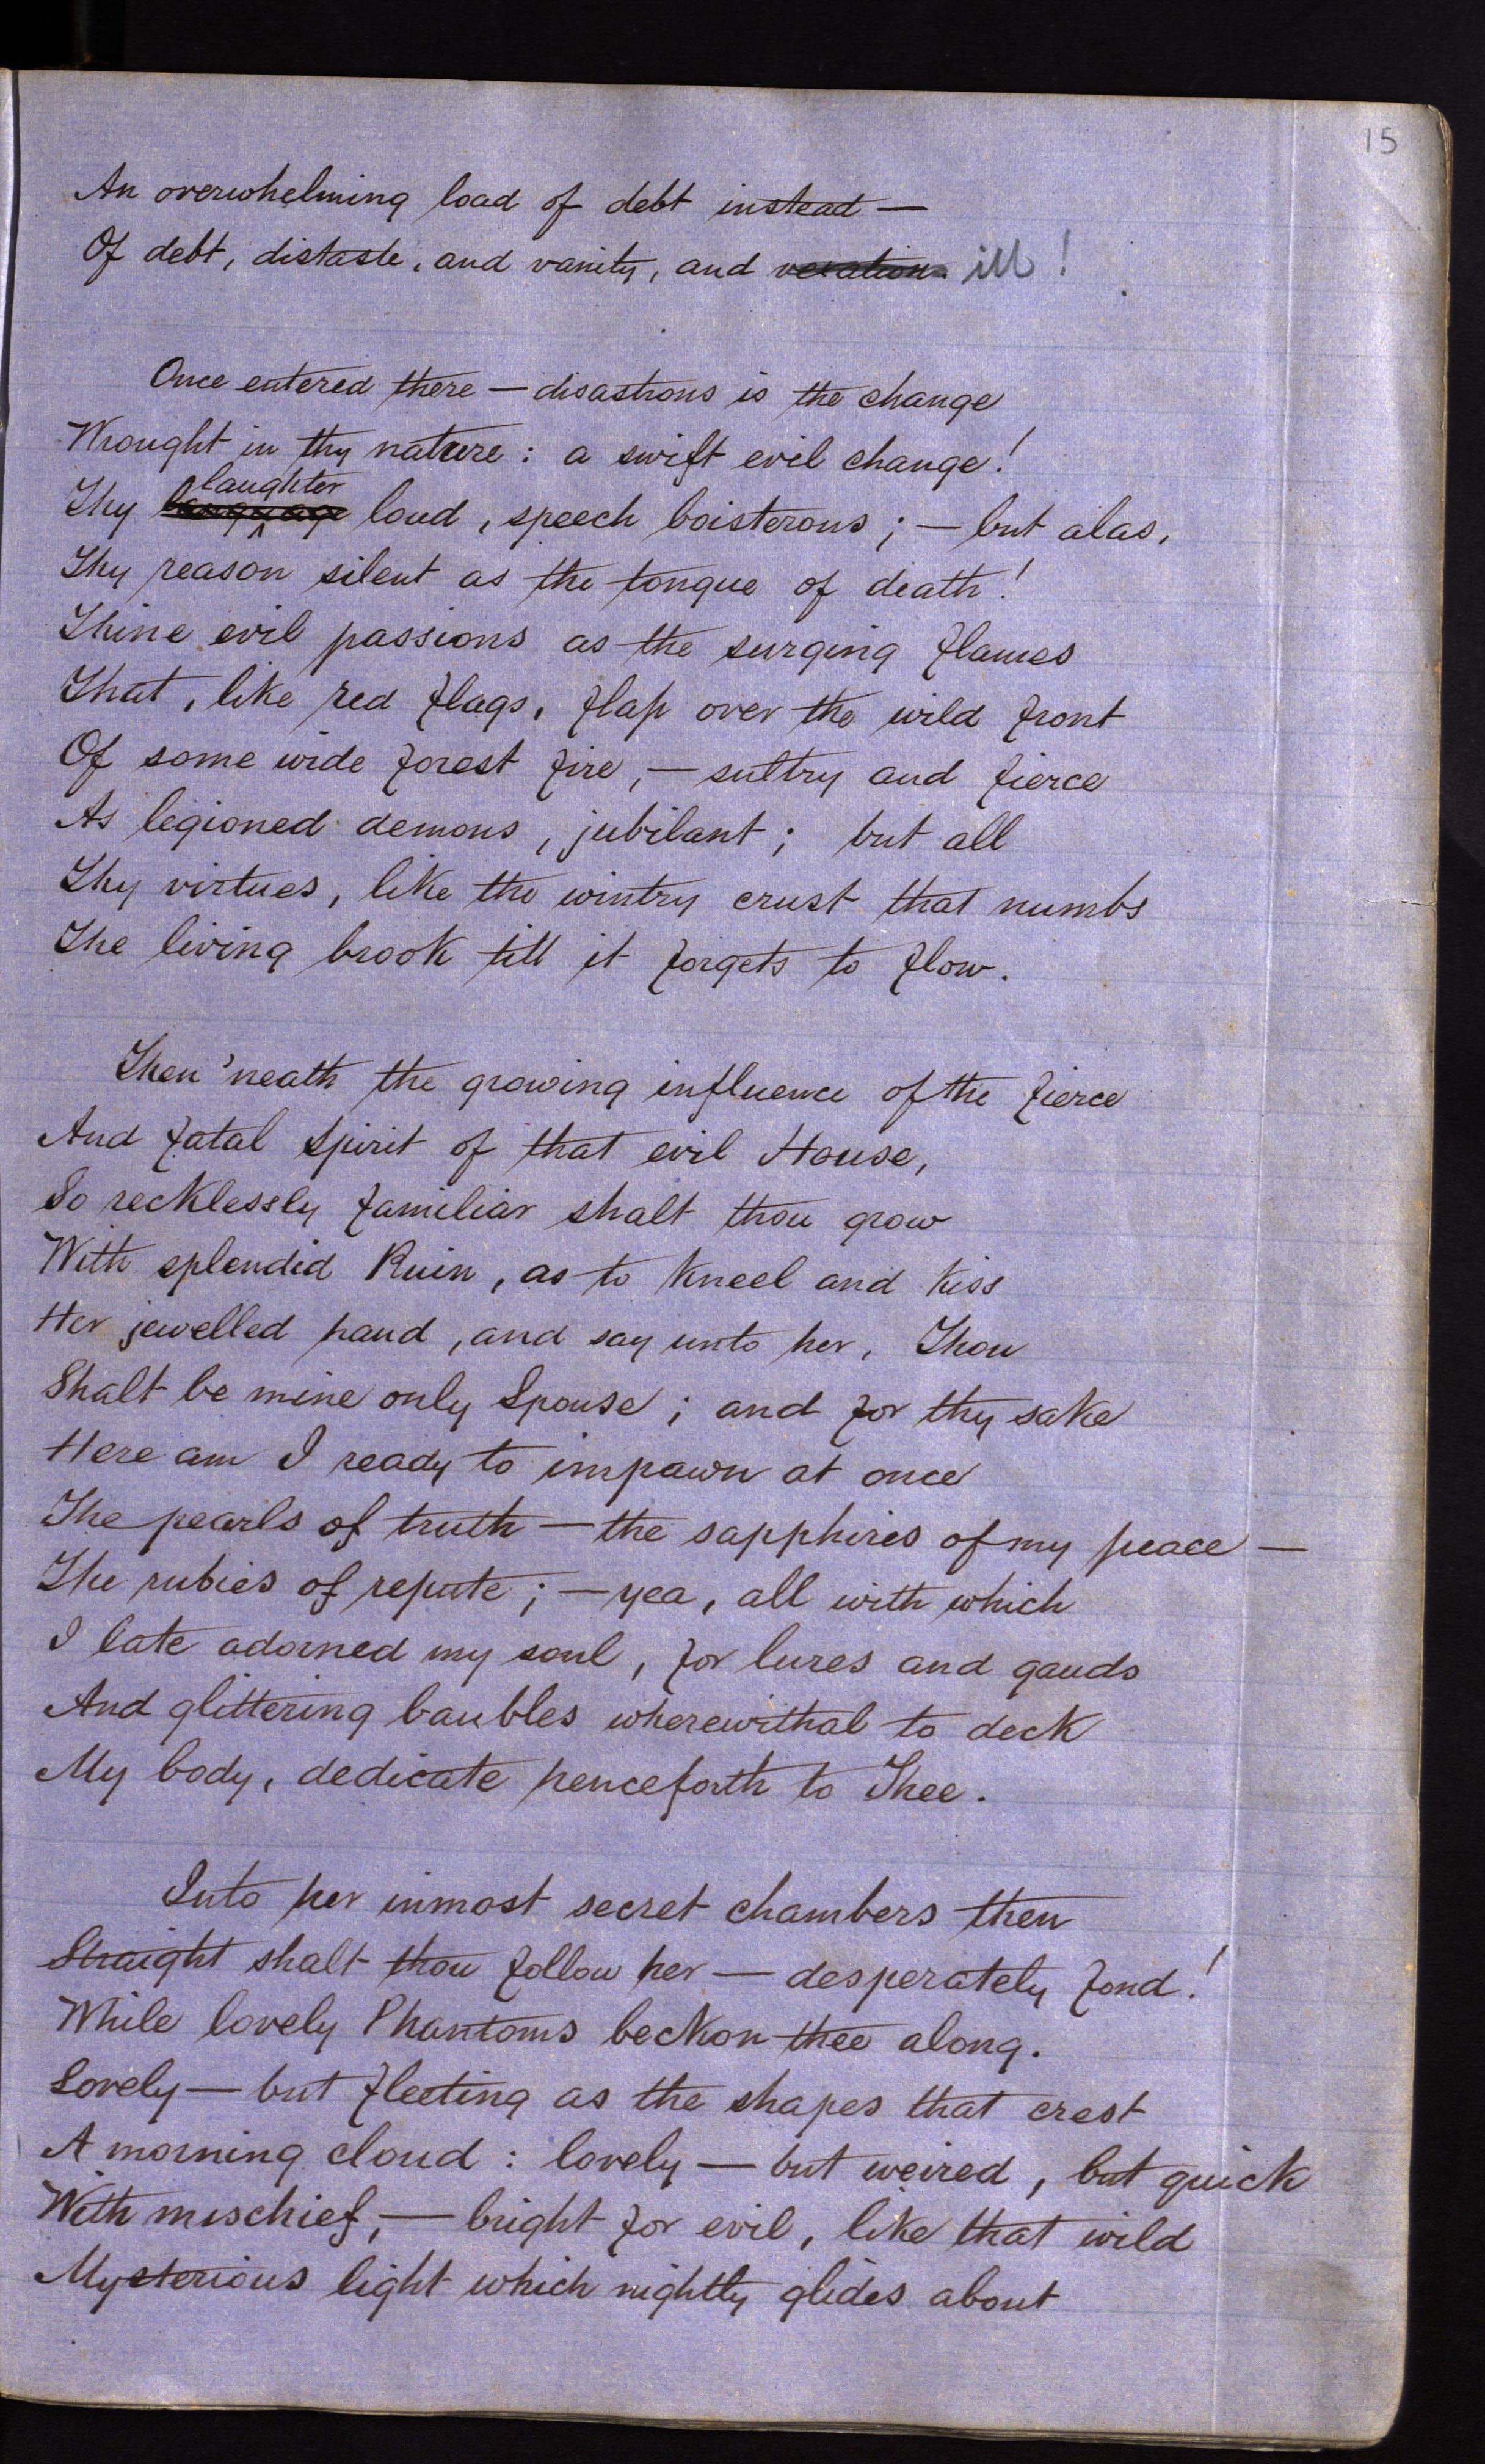 15
An overwhelming load of debt instead —
Of debt, distaste, and vanity, and vexation. ill!
Once entered there — disastrous is the change
Wrought in thy nature: a swift evil change!
laughter
Thy language loud, speech boisterous; — but alas,
Thy reason silent as the tongue of death!
Thine evil passions as the surging flames
That, like red flags, flap over the wild front
Of some wide forest fire, — sultry and fierce
As legioned demons, jubilant; but all
Thy virtues, like the wintry crust that numbs
The living brook till it forgets to flow.
Then 'neath the growing influence of the fierce
And fatal Spirit of that evil House,
So recklessly familiar shalt thou grow
With splendid Ruin, as to kneel and kiss
Her jewelled hand, and say unto her, Thou
Shalt be mine only Spouse; and for thy sake
Here am I ready to impawn at once
The pearls of truth — the sapphires of my peace —
The rubies of repute; — yea, all with which
I late adorned my soul, for lures and gauds
And glittering baubles wherewithal to deck
My body, dedicate henceforth to Thee.
Into her inmost secret chambers then
Straight shalt thou follow her — desperately fond!
While lovely Phantoms beckon thee along.
Lovely — but fleeting as the shapes that crest
A morning cloud: lovely — but weired, but quick
With mischief, — bright for evil, like that wild
Mysterious light which nightly glides about